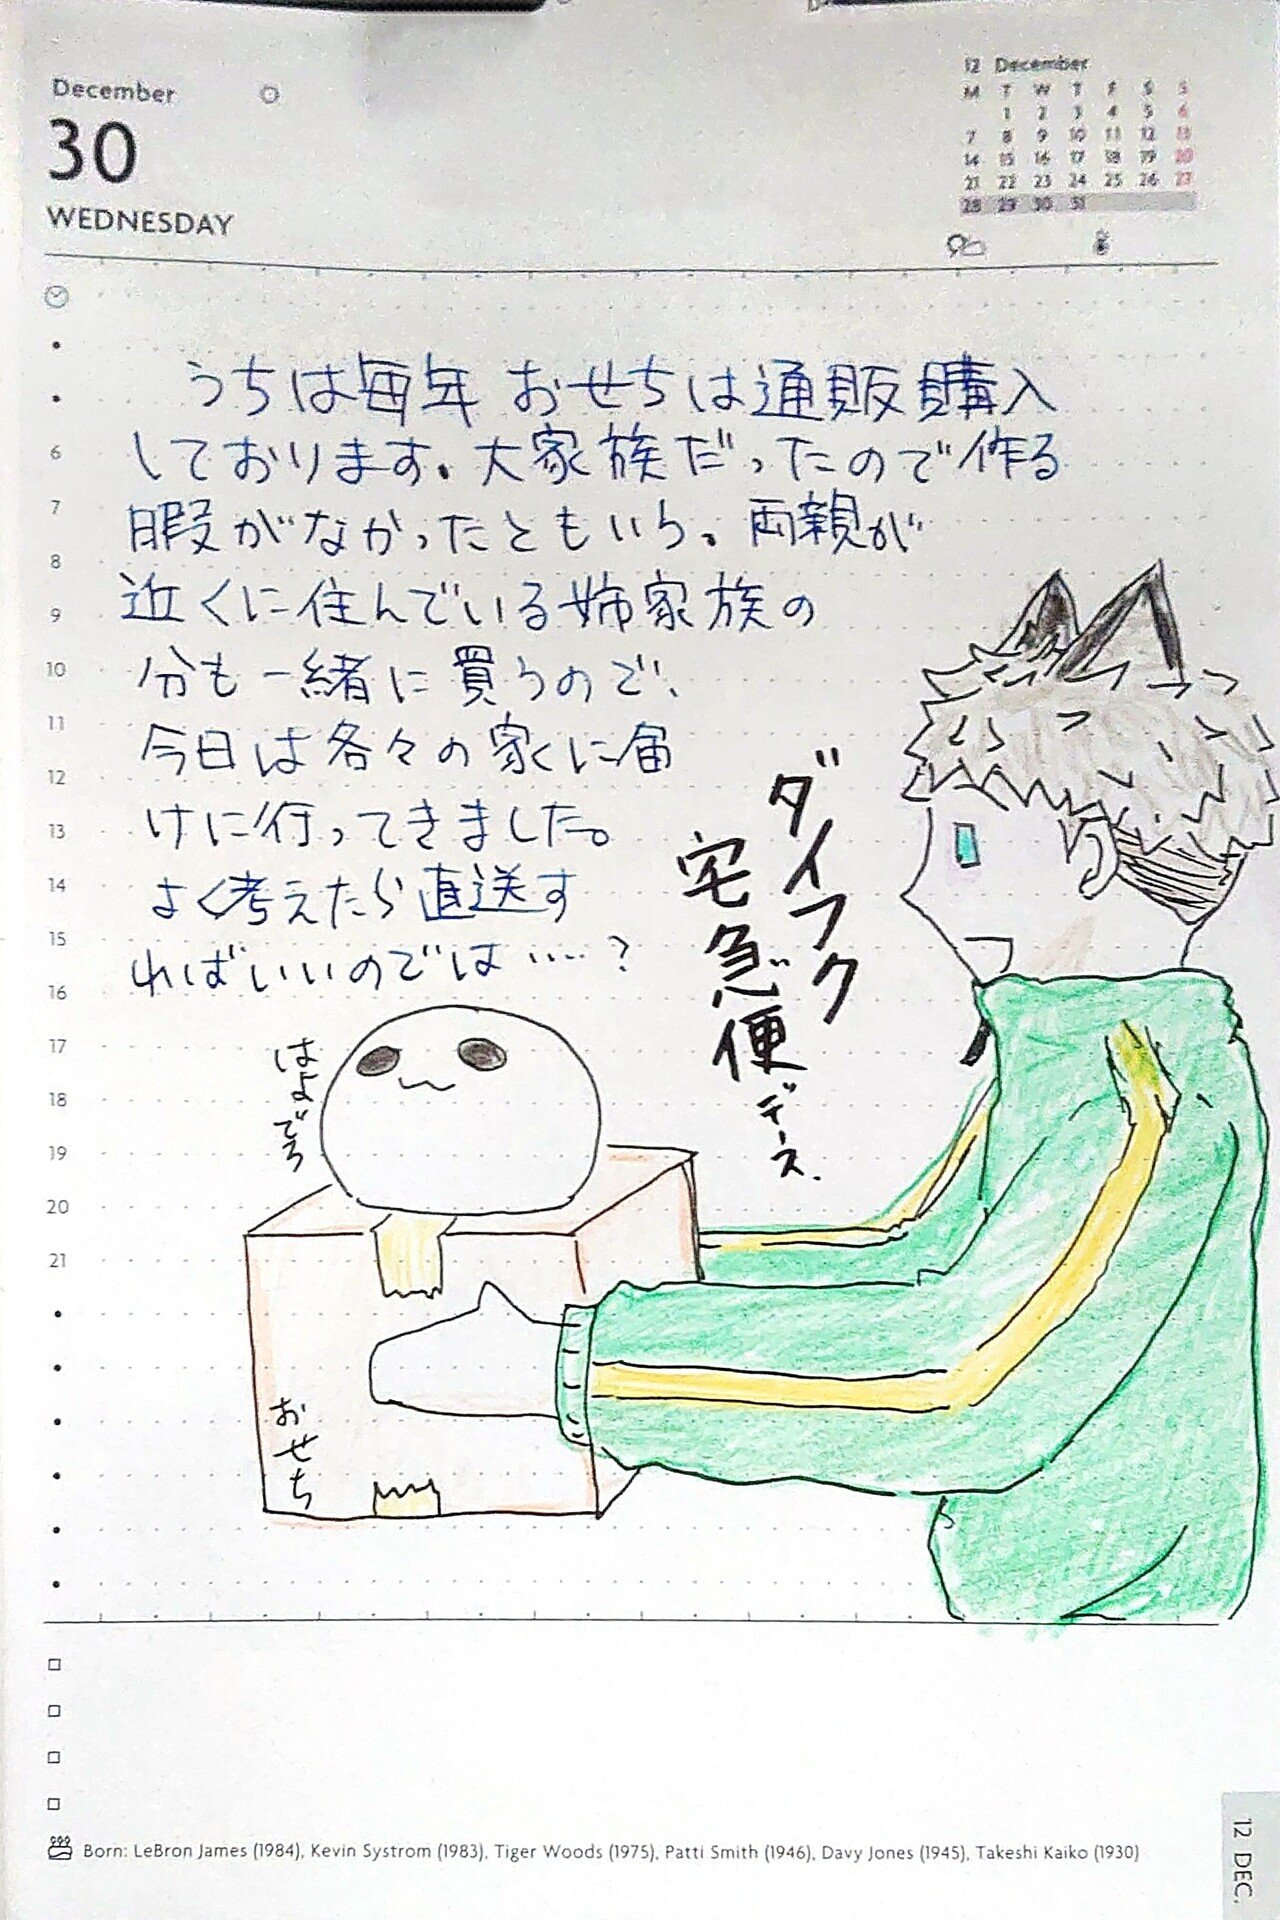 December
30
WEDNESDAY
12 December
M T W T F S S
1 2 3 4 5 6
7 8 9 10 11 12 13
14 15 16 17 18 19 20
21 22 23 24 25 26 27
28 29 30 31
うちは毎年 おせちは通販購入
しております。大家族だったので作る
暇がなかったともいう。両親が
近くに住んでいる姉家族の
分も一緒に買うので、
今日は各々の家くに届
けに行ってきました。
よく考えたら直送す
ればいいのでは……?
ダイフク
宅急便
デース.
はよでろ
おせち
6
7
8
9
10
11
12
13
14
15
16
17
18
19
20
21
Born: LeBron James (1984), Kevin Systrom (1983), Tiger Woods (1975), Patti Smith (1946), Davy Jones (1945), Takeshi Kaiko (1930)
12 DEC.